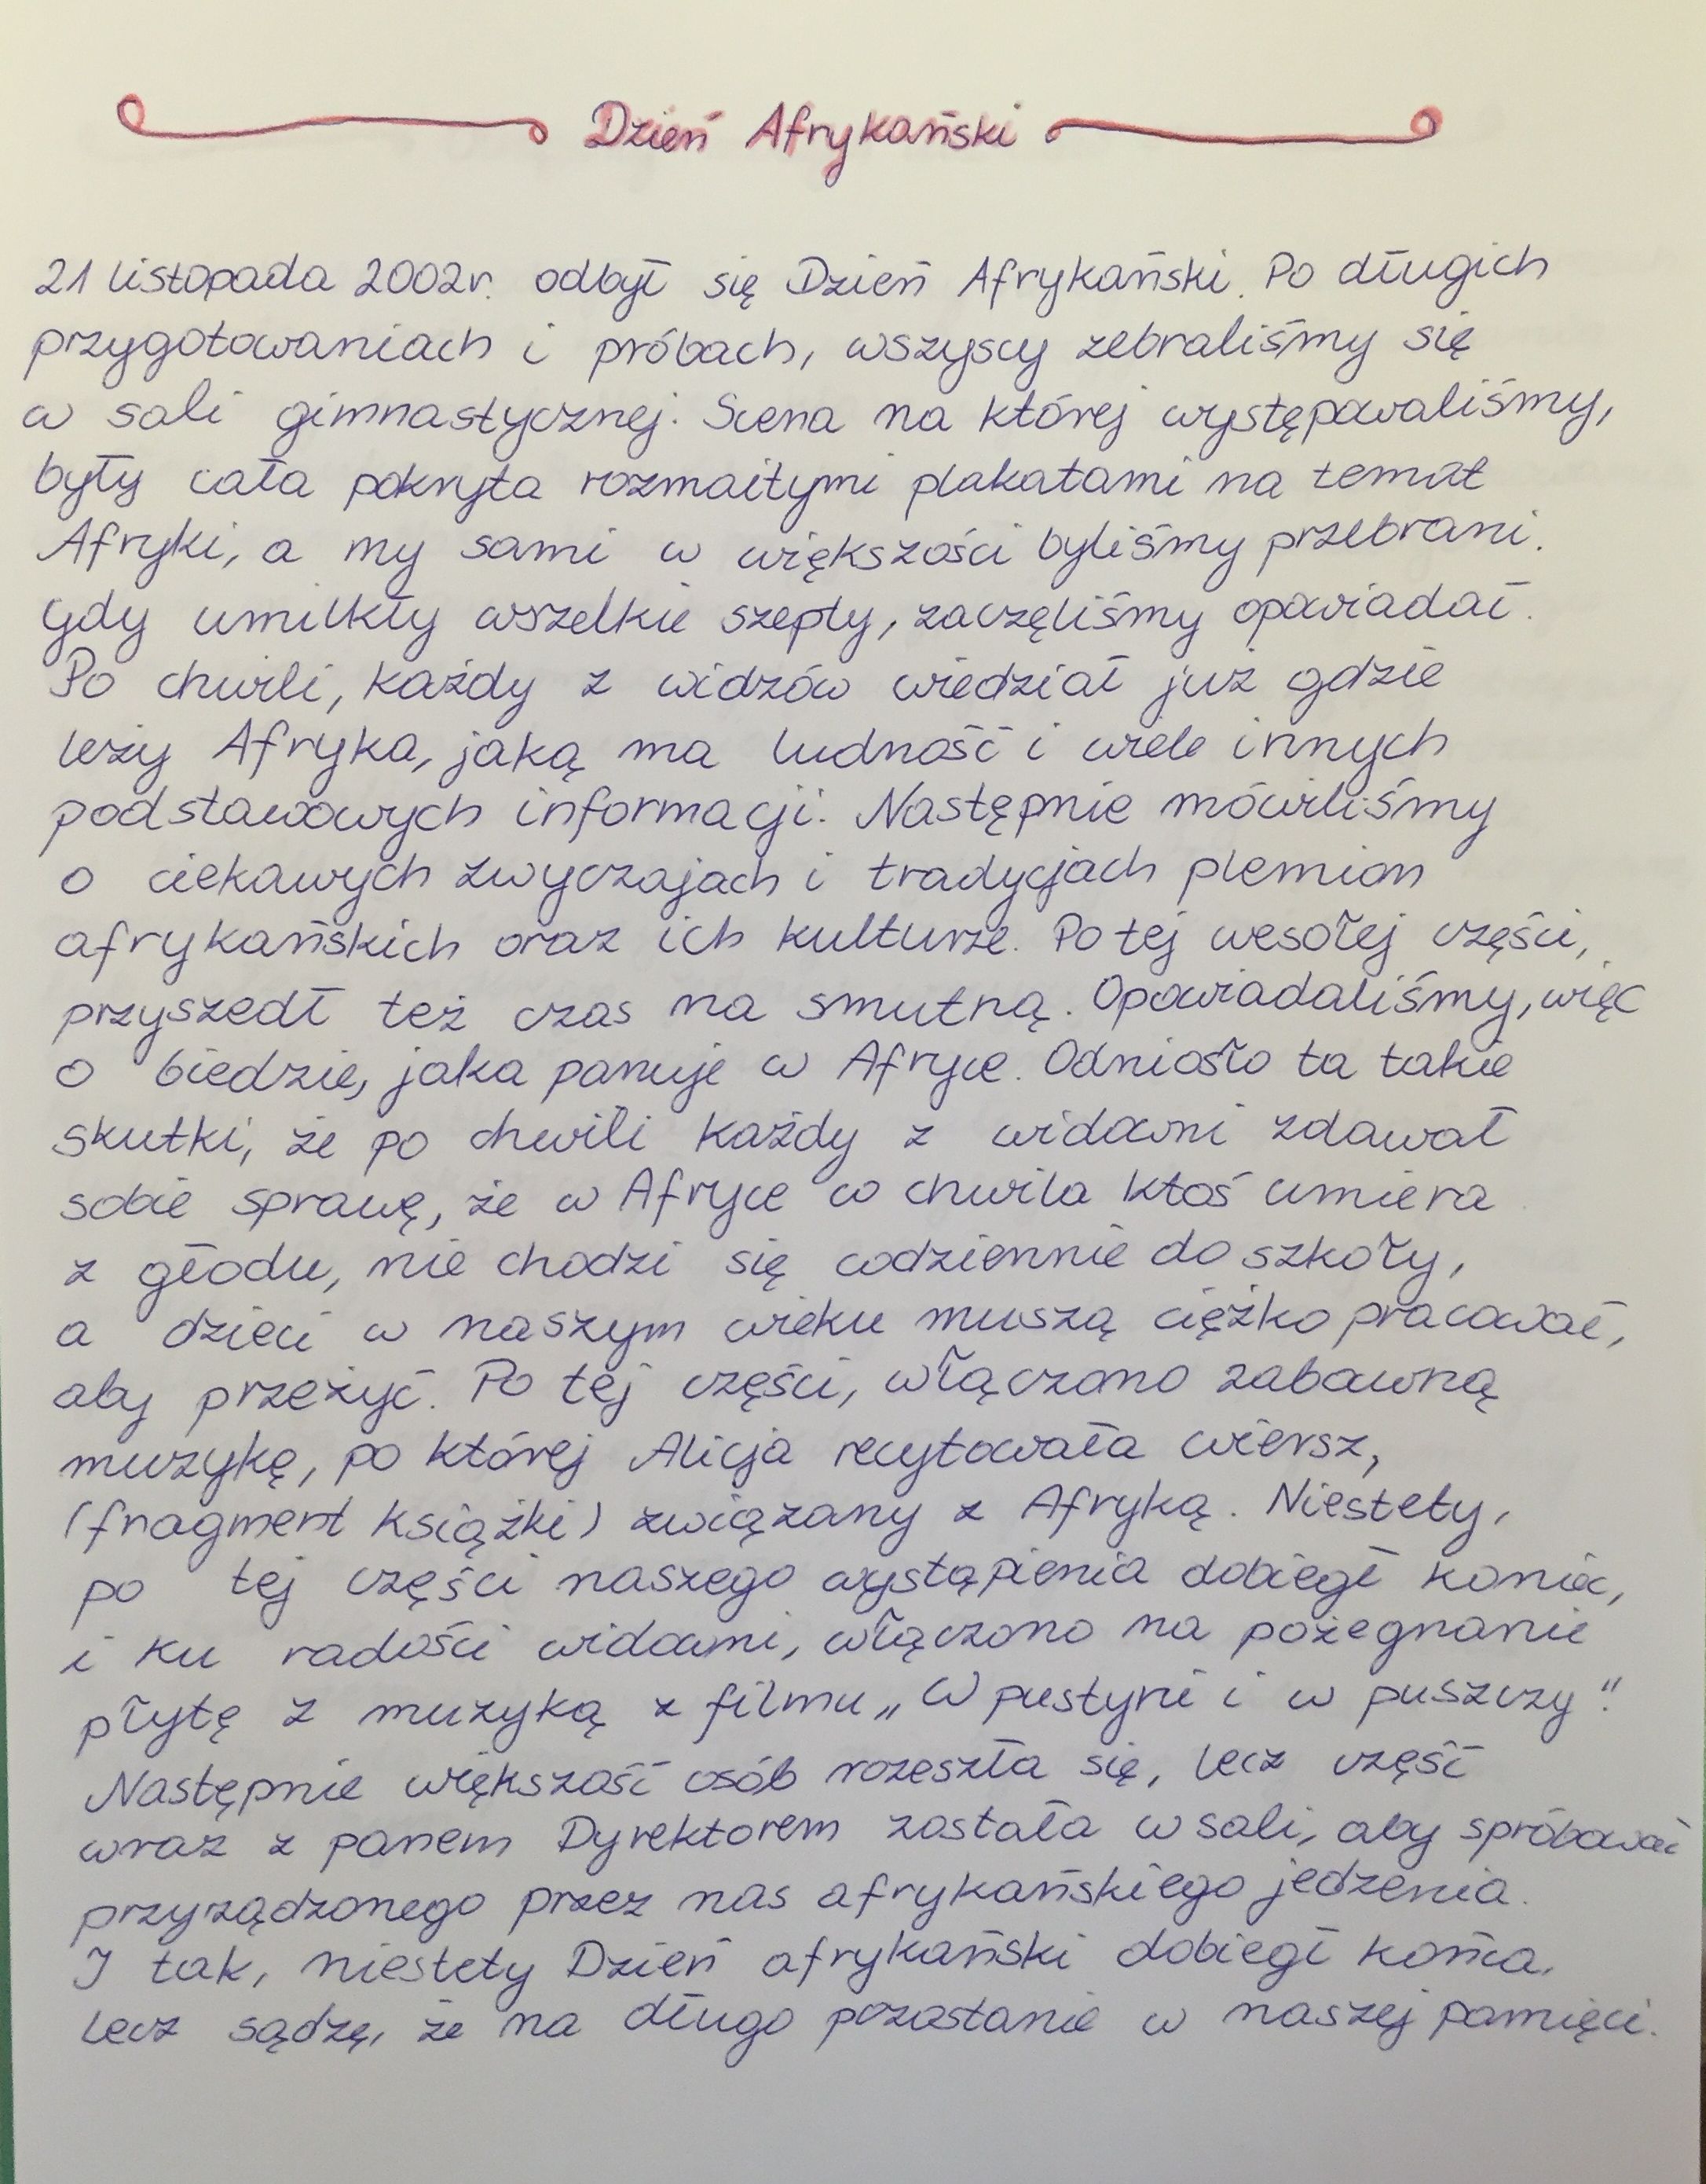 Dzień Afrykański
21 listopada 2002r. odbył się Dzień Afrykański. Po długich
przygotowaniach i próbach, wszyscy zebraliśmy się
w sali gimnastycznej. Scena na której występowaliśmy,
były cała pokryta rozmaitymi plakatami na temat
Afryki, a my sami w większości byliśmy przebrani.
Gdy umilkły wszelkie szepty, zaczęliśmy opowiadać.
Po chwili, każdy z widzów wiedział już gdzie
leży Afryka, jaką ma ludność i wiele innych
podstawowych informacji. Następnie mówiliśmy
o ciekawych zwyczajach i tradycjach plemion
afrykańskich oraz ich kulturze. Po tej wesołej części,
przyszedł też czas na smutną. Opowiadaliśmy, więc
o biedzie, jaka panuje w Afryce. Odniosło ta takie
skutki, że po chwili każdy z widowni zdawał
sobie sprawę, że w Afryce co chwila ktoś umiera
z głodu, nie chodzi się codziennie do szkoły,
a dzieci w naszym wieku muszą ciężko pracować,
aby przeżyć. Po tej części, włączono zabawną
muzykę, po której Alicja recytowała wiersz,
(fragment książki) związany z Afryką. Niestety,
po tej części naszego wystąpienia dobiegł koniec,
i ku radości widowni, włączono na pożegnanie
płytę z muzyką z filmu „W pustyni i w puszczy".
Następnie większość osób rozeszła się, lecz część
wraz z panem Dyrektorem została w sali, aby spróbować
przyrządzonego przez nas afrykańskiego jedzenia.
I tak, niestety Dzień afrykański dobiegł końca,
lecz sądzę, że na długo pozostanie w naszej pamięci.